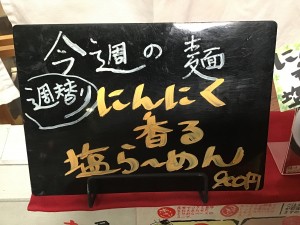 今週の麺
週替り
にんにく
香る
塩らーめん
900円